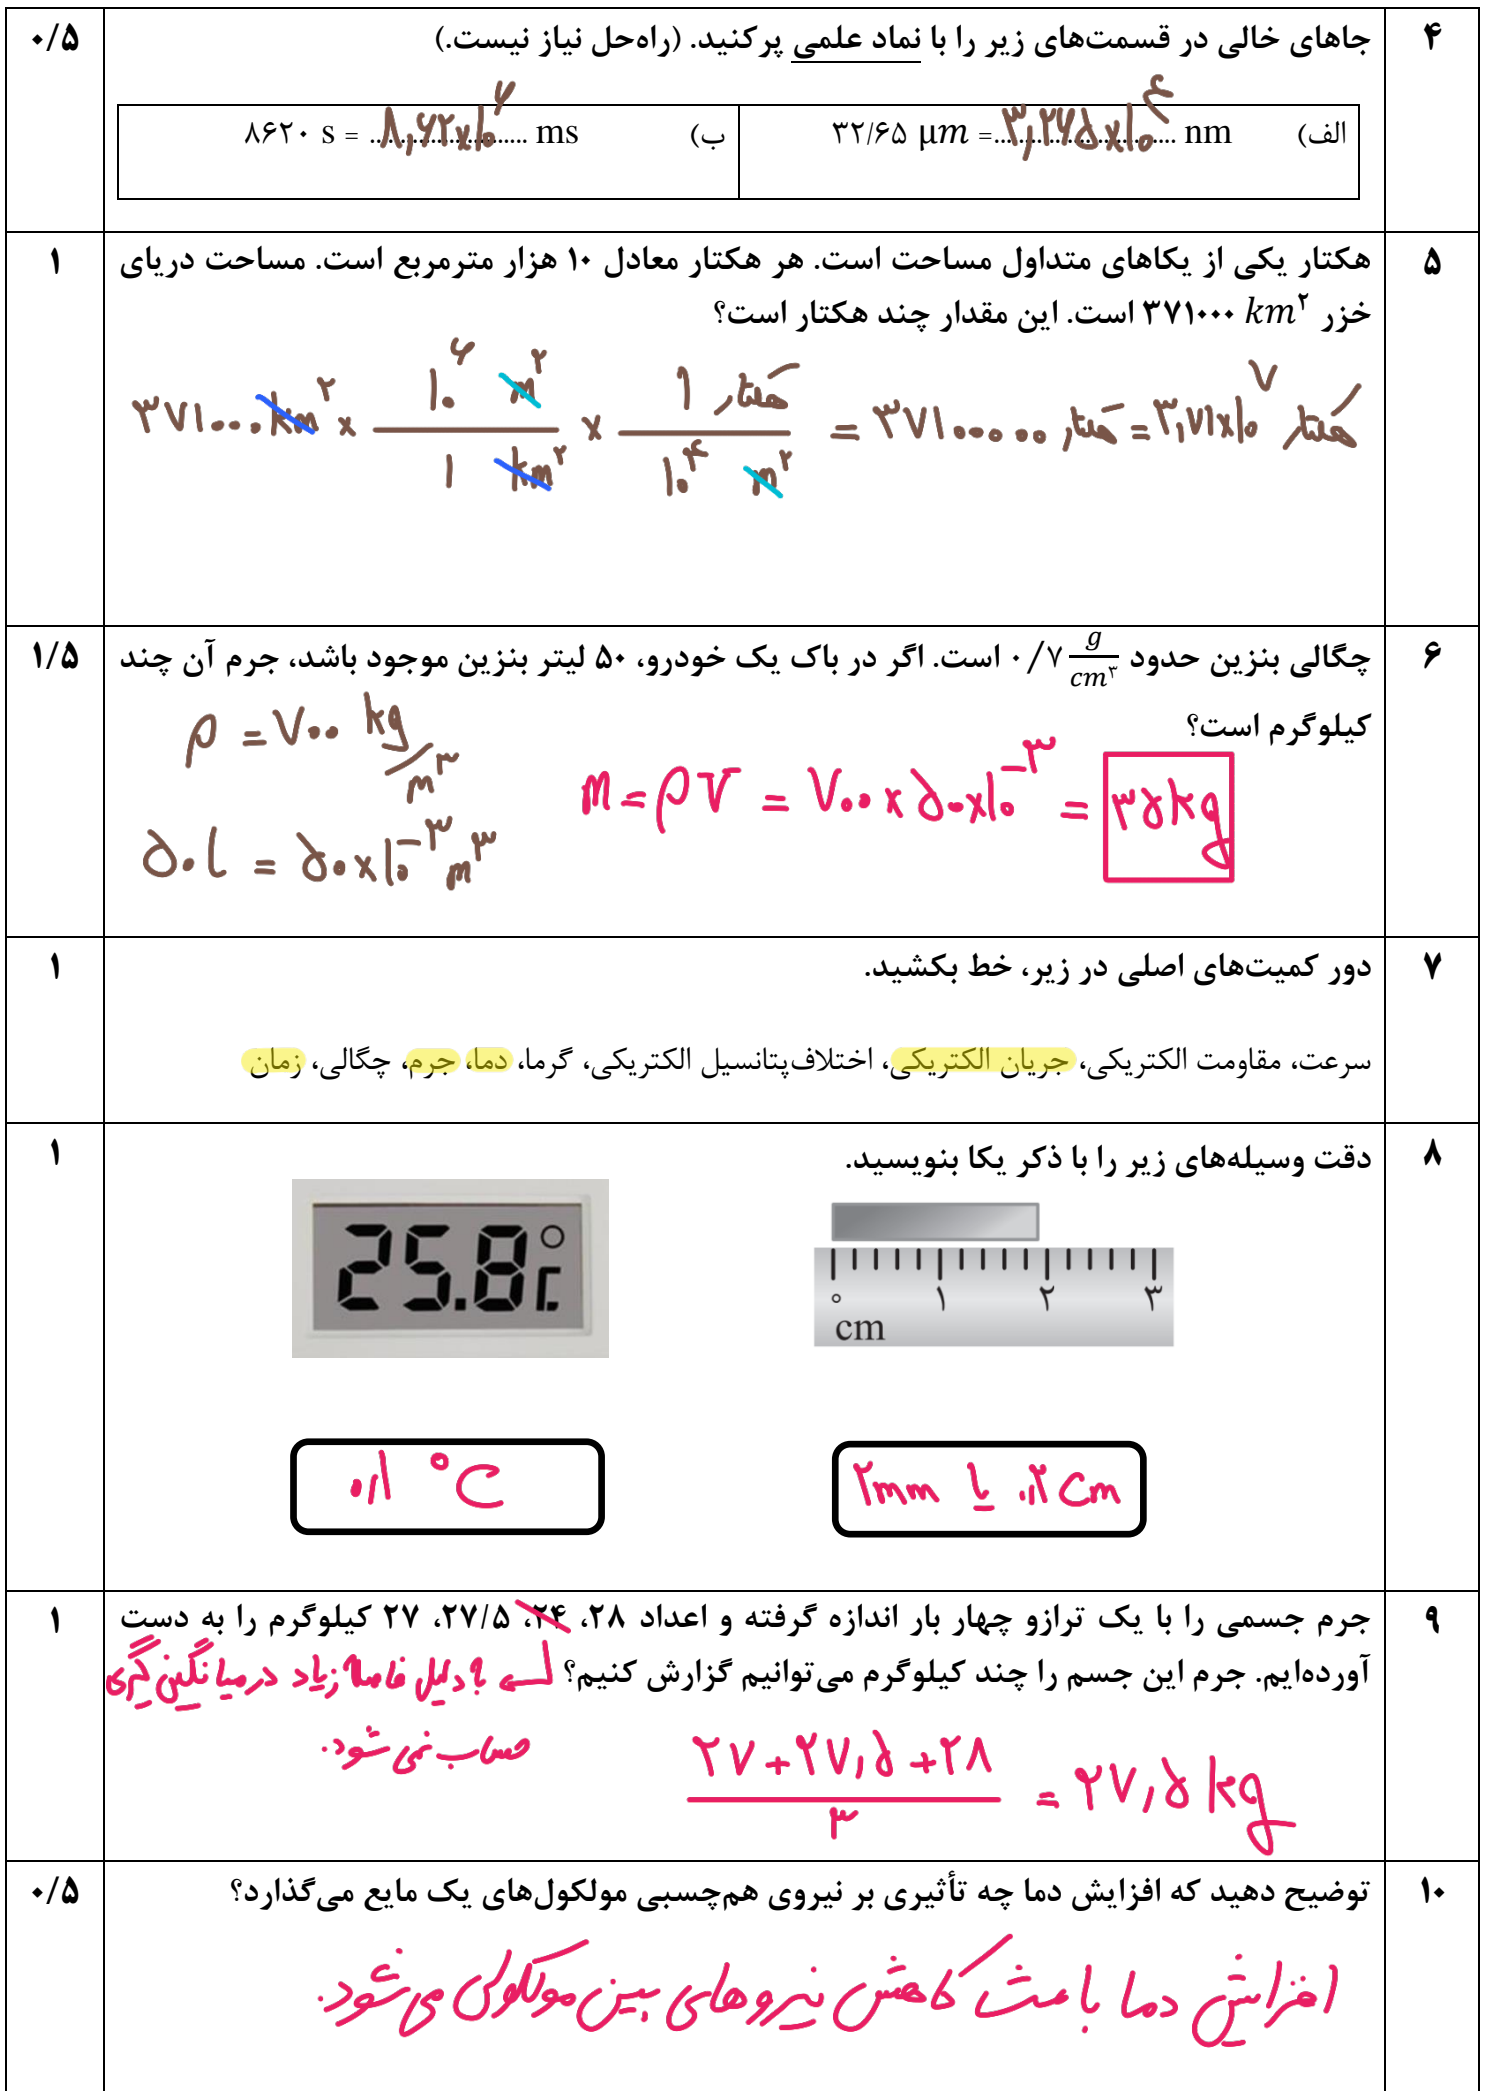 ۴ جاهای خالی در قسمت‌های زیر را با نماد علمی پرکنید. (راه‌حل نیاز نیست.) ۰/۵
الف) ۳۲/۶۵ μm = ۳,۲۶۵×۱۰^۴ nm
ب) ۸۶۲۰ s = ۸,۶۲×۱۰^۶ ms
۵ هکتار یکی از یکاهای متداول مساحت است. هر هکتار معادل ۱۰ هزار مترمربع است. مساحت دریای ۱
خزر ۳۷۱۰۰۰ km^۲ است. این مقدار چند هکتار است؟
۳۷۱۰۰۰ km^۲ × ۱۰^۶ m^۲ / ۱ km^۲ × ۱ هکتار / ۱۰^۴ m^۲ = ۳۷۱۰۰۰۰۰ هکتار = ۳,۷۱×۱۰^۷ هکتار
۶ چگالی بنزین حدود ۰/۷ g/cm^۳ است. اگر در باک یک خودرو، ۵۰ لیتر بنزین موجود باشد، جرم آن چند ۱/۵
کیلوگرم است؟
ρ = ۷۰۰ kg/m^۳
m = ρV = ۷۰۰ × ۵۰×۱۰^-۳ = ۳۵kg
۵۰L = ۵۰×۱۰^-۳ m^۳
۷ دور کمیت‌های اصلی در زیر، خط بکشید. ۱
سرعت، مقاومت الکتریکی، جریان الکتریکی، اختلاف‌پتانسیل الکتریکی، گرما، دما، جرم، چگالی، زمان
۸ دقت وسیله‌های زیر را با ذکر یکا بنویسید. ۱
25.8°C
۰ ۱ ۲ ۳
cm
۲mm یا ۰,۲ cm
۰,۱ °C
۹ جرم جسمی را با یک ترازو چهار بار اندازه گرفته و اعداد ۲۸، ۲۴، ۲۷/۵، ۲۷ کیلوگرم را به دست ۱
آورده‌ایم. جرم این جسم را چند کیلوگرم می‌توانیم گزارش کنیم؟ به دلیل فاصله زیاد در میانگین گیری
حساب نمی شود.
۲۷+۲۷,۵+۲۸ / ۳ = ۲۷,۵ kg
۱۰ توضیح دهید که افزایش دما چه تأثیری بر نیروی هم‌چسبی مولکول‌های یک مایع می‌گذارد؟ ۰/۵
افزایش دما باعث کاهش نیروهای بین مولکولی می شود.